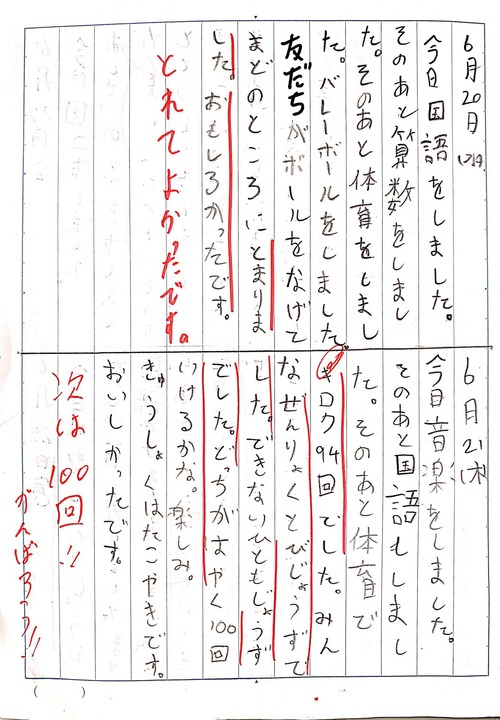 6月20日(水)
今日国語をしました。
そのあと算数をしまし
た。そのあと体育をしまし
た。バレーボールをしました。
友だちがボールをなげて
まどのところにとまりま
した。おもしろかったです。
とれてよかったです。
6月21(木
今日音楽をしました。
そのあと国語もしまし
た。そのあと体育で
キロク94回でした。みん
なぜんりょくとびじょうずで
した。できないひともじょうず
でした。どっちがはやく100回
いけるかな。楽しみ。
きゅうしょくはたこやきです。
おいしかったです。
次は100回!!
がんばろうっ!!
( )